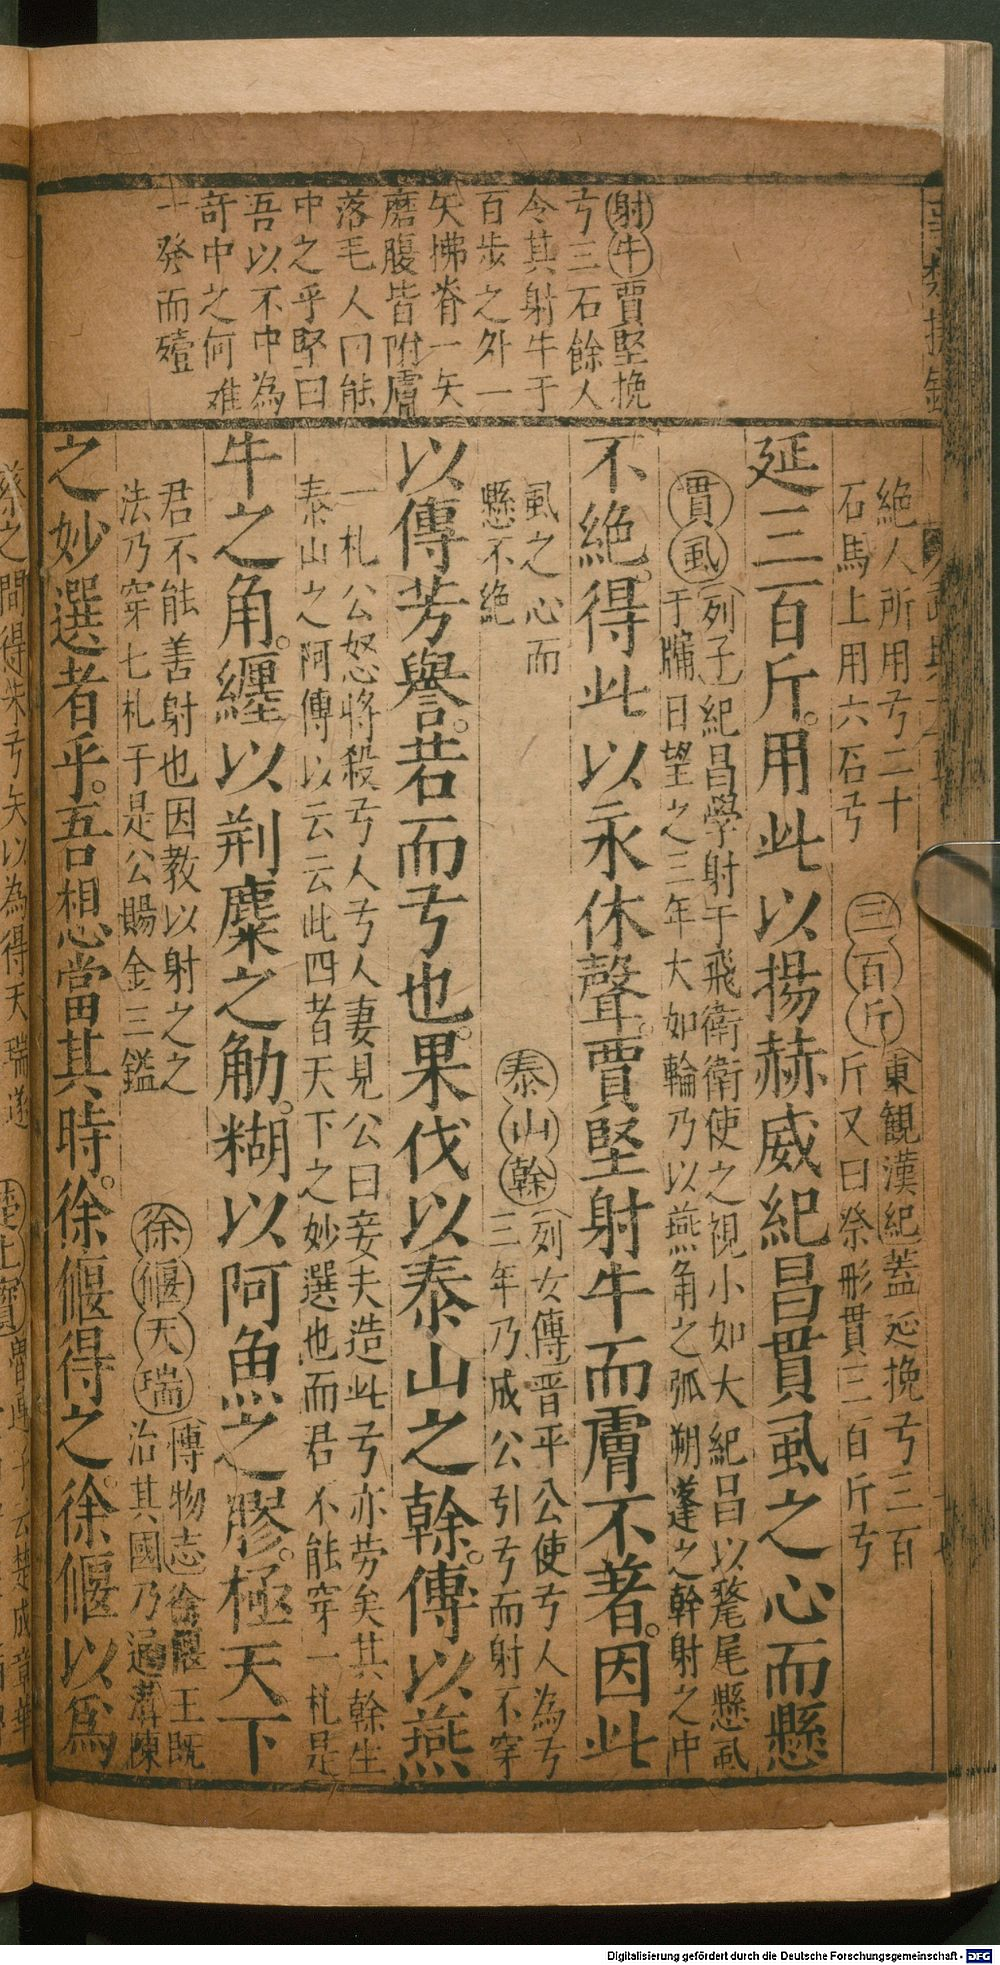 射牛賈堅挽
弓三石餘人
令其射牛于
百步之外一
矢拂脊一矢
磨腹皆附膚
落毛人曰能
中之乎堅曰
吾以不中為
竒中之何难
一發而殪
絶人所用弓二十
石馬上用六石弓
三百斤
東觀漢紀蓋延挽弓三百
斤又曰祭形貫三百斤弓
延三百斤。用此以揚赫威紀昌貫虱之心而懸
貫虱
列子紀昌學射于飛衛衛使之視小如大紀昌以氂尾懸虱
于牖日望之三年大如輪乃以燕角之弧朔蓬之幹射之中
不絶。得此以永休聲。賈堅射牛而膚不著。因此
虱之心而
懸不絶
泰山榦
列女傳晋平公使弓人為弓
三年乃成公引弓而射不穿
以傳芳譽。若而弓也。果伐以泰山之榦。傳以燕
一札公怒將殺弓人弓人妻見公曰妾夫造此弓亦劳矣其榦生
泰山之阿傳以云云此四者天下之妙選也而君不能穿一札是
牛之角。纏以荆麋之觔。糊以阿魚之膠。極天下
君不能善射也因教以射之之
法乃穿七札于是公賜金三鎰
徐偃天瑞
博物志徐偃王既
治其國乃通溝陳
之妙選者乎。吾想當其時。徐偃得之。徐偃以為
蔡之間得朱弓矢以為得天瑞遂
Digitalisierung gefördert durch die Deutsche Forschungsgemeinschaft - DFG